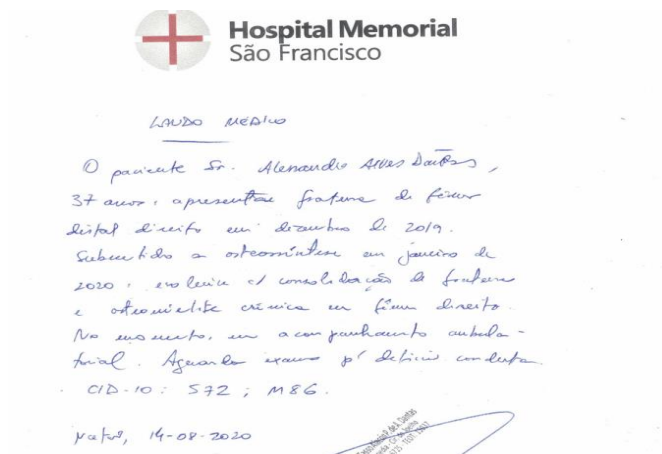 Hospital Memorial
São Francisco
LAUDO MÉDICO
O paciente Sr. Alexandre Alves Dantas,
37 anos, apresentou fratura de fêmur
distal direito em dezembro de 2019.
Submetido a osteossíntese em janeiro de
2020, evoluiu c/ consolidação da fratura
e osteomielite crônica em fêmur direito.
No momento, em acompanhamento ambula-
torial. Aguarda exame p/ definir conduta.
CID-10: S72; M86.
Natal, 14-08-2020